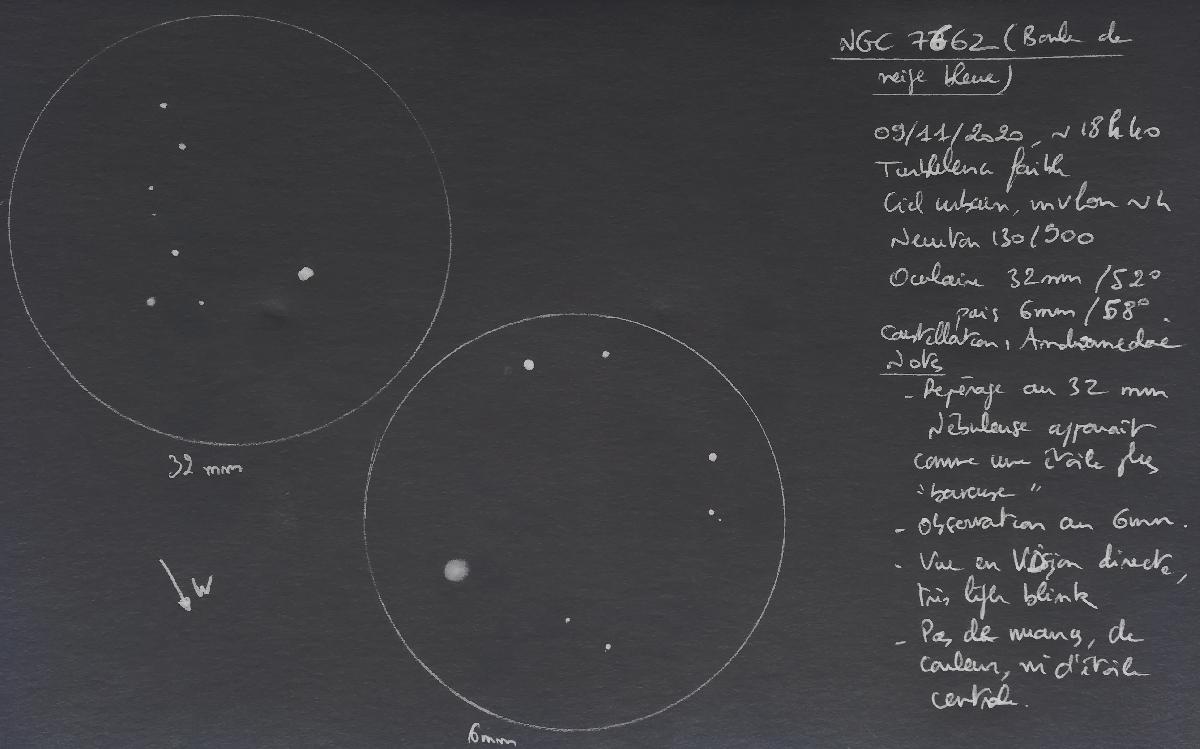 NGC 7662 (Boule de
neige bleue)
09/11/2020, ~ 18h40
Turbulence faible
Ciel urbain, mvlon ~ 4
Newton 130/900
Oculaire 32mm /52°
puis 6mm /58°.
Constellation : Andromedae
Nots
- Repérage au 32 mm
Nébuleuse apparaît
comme une étoile plus
"baveuse"
- Observation au 6mm.
- Vue en Vision directe,
très léger blink
- Pas de nuances, de
couleur, ni d'étoile
centrale.
32 mm
W
6mm